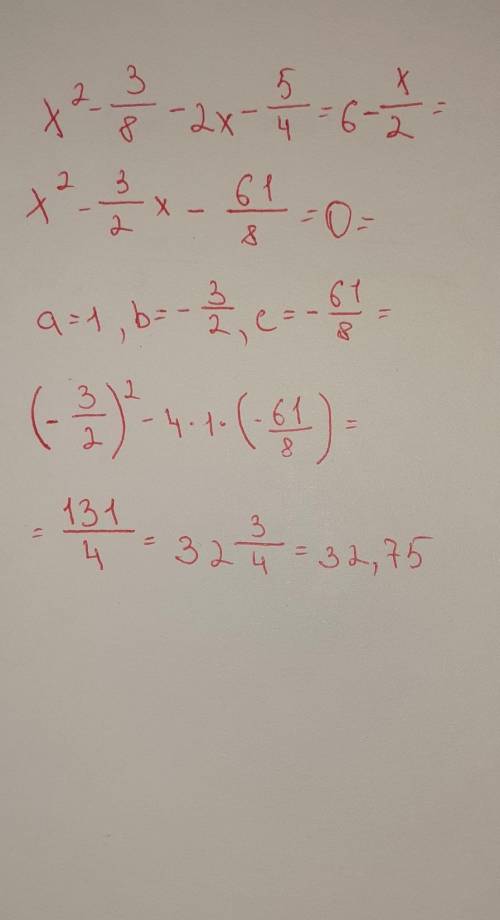 x² - 3/8 - 2x - 5/4 = 6 - x/2 =
x² - 3/2 x - 61/8 = 0 =
a=1, b= - 3/2, c = - 61/8 =
(- 3/2)² - 4·1·(- 61/8) =
= 131/4 = 32 3/4 = 32,75